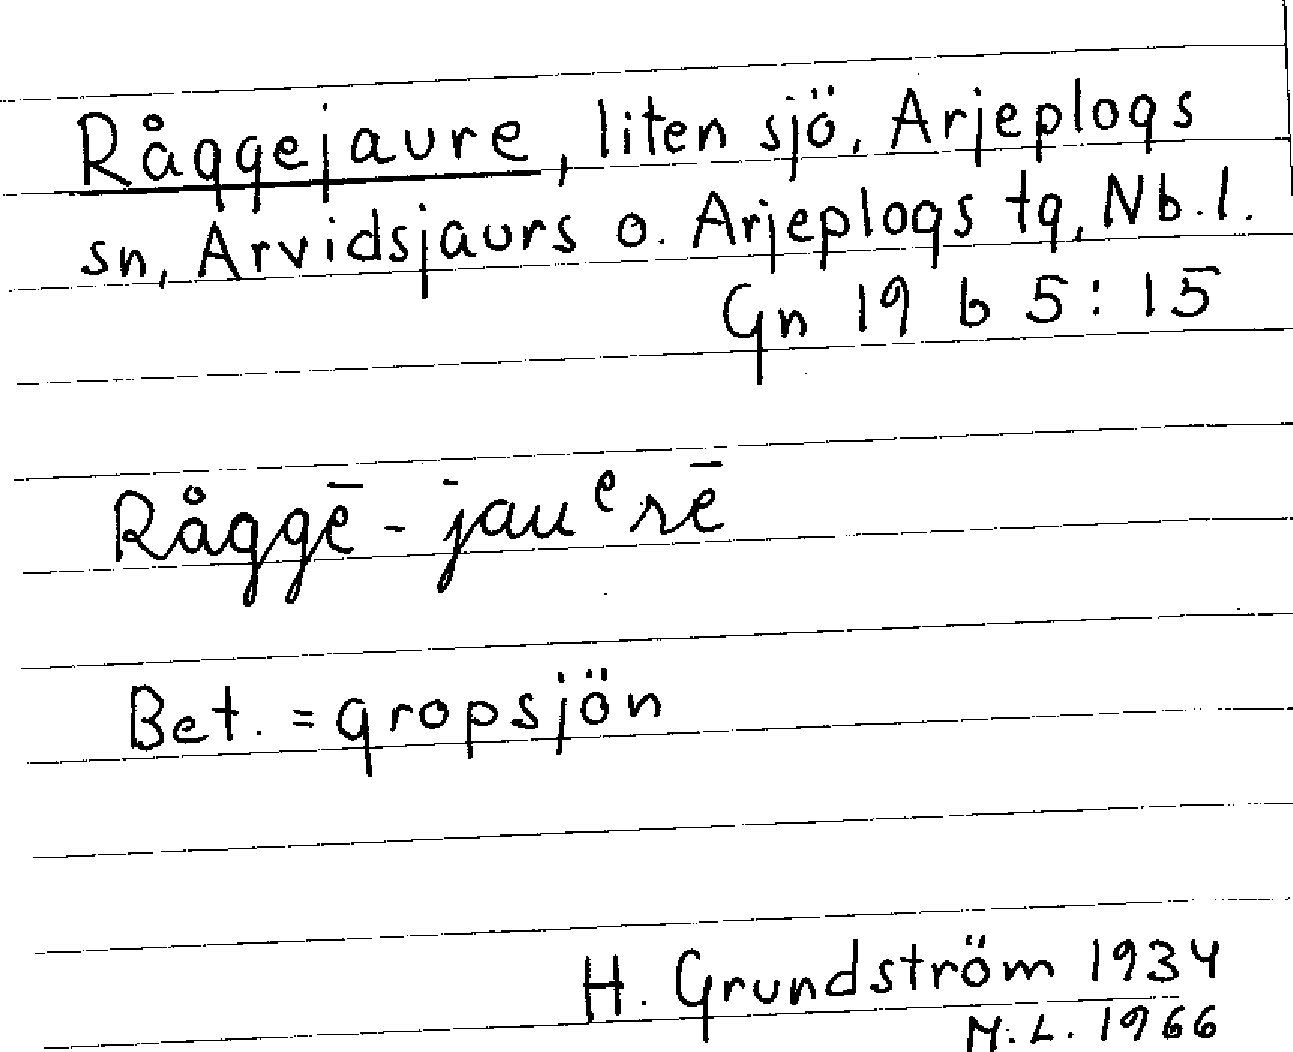 Råggejaure, liten sjö, Arjeplogs
sn, Arvidsjaurs o. Arjeplogs tg, Nb.l.
Gn 19 b 5:15
Råggē-jauᵉrē
Bet. = gropsjön
H. Grundström 1934
M.L. 1966